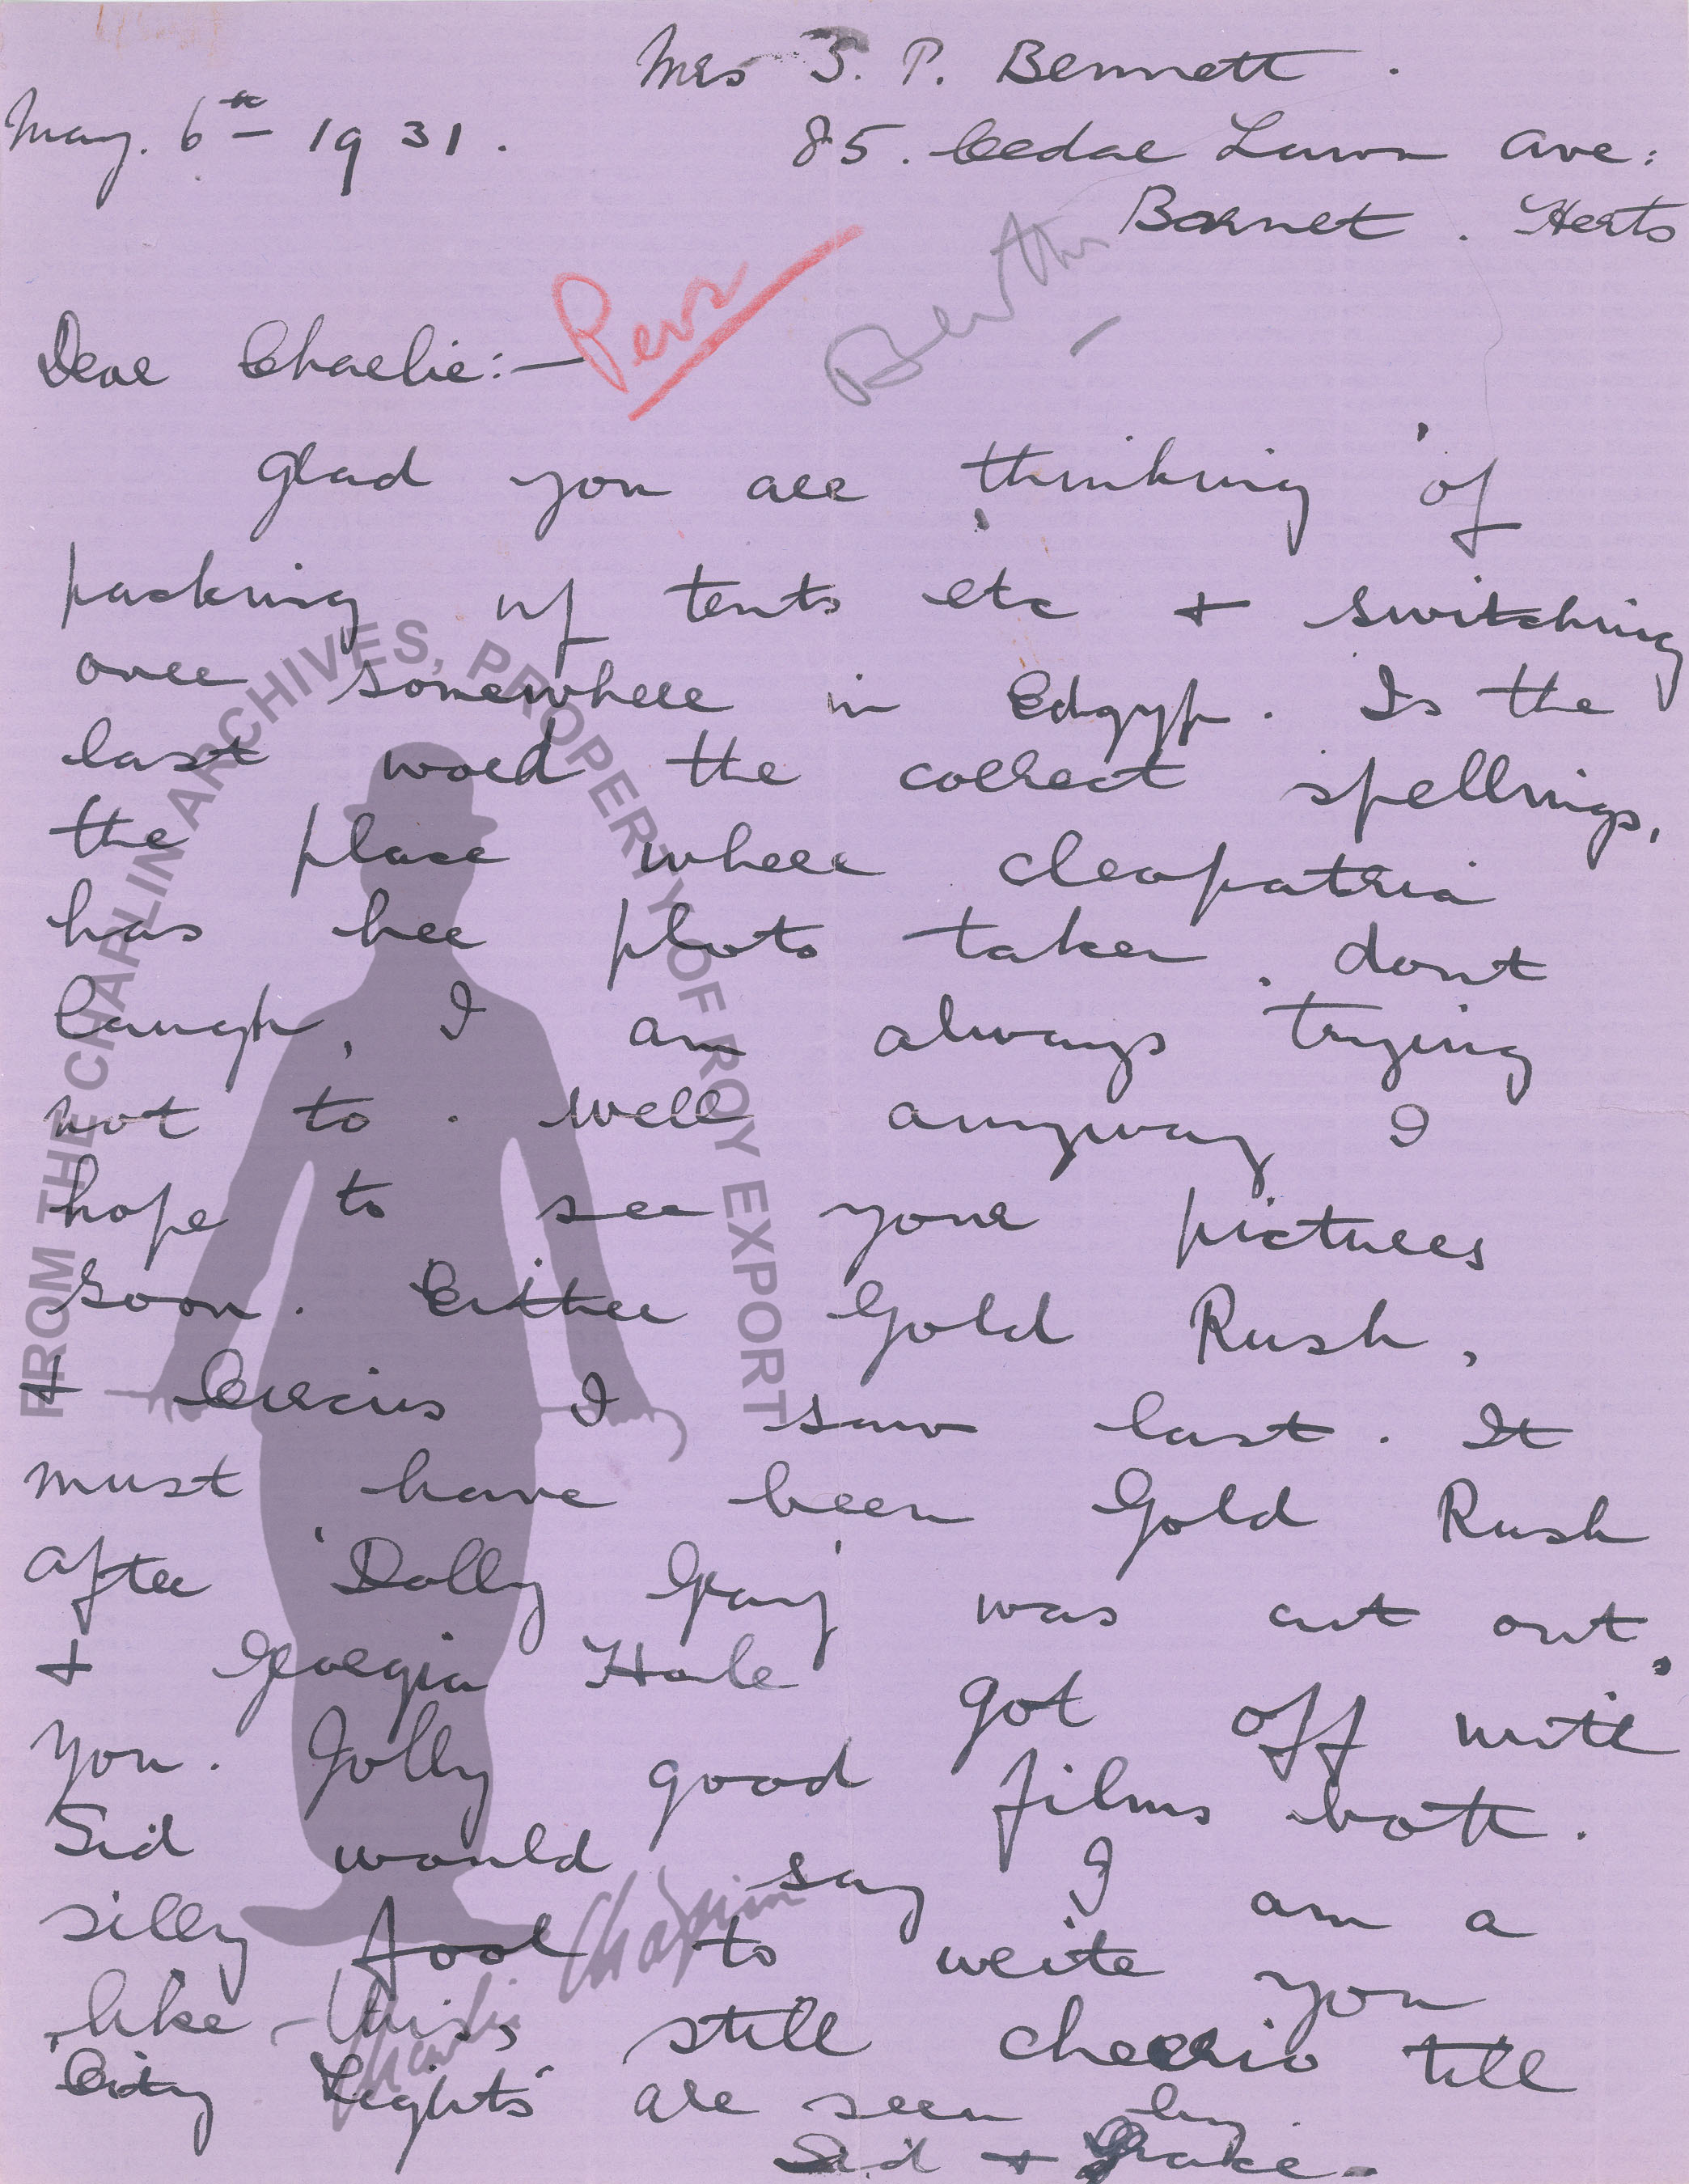 Mrs S. P. Bennett.
May. 6th 1931.
85. Cedar Lawn Ave:
Barnet. Herts
Pers
Dear Charlie:—
glad you are 'thinking' of
packing up tents etc + switching
over somewhere in Edgyp. Is the
last word the correct spellings,
the place where cleopatria
has her photo taken. dont
laugh, I am always trying
not to. Well anyway I
hope to see your pictures
soon. Either Gold Rush,
+ Circus I saw last. It
must have been Gold Rush
after 'Dolly Gray' was cut out,
+ Georgia Hale got off with
you. Jolly good films both.
Sid would say I am a
silly fool to write you
like this, still cheerio till
'City Lights' are seen by.
Sid + Grace.
FROM THE CHAPLIN ARCHIVES, PROPERTY OF ROY EXPORT
Charlie Chaplin